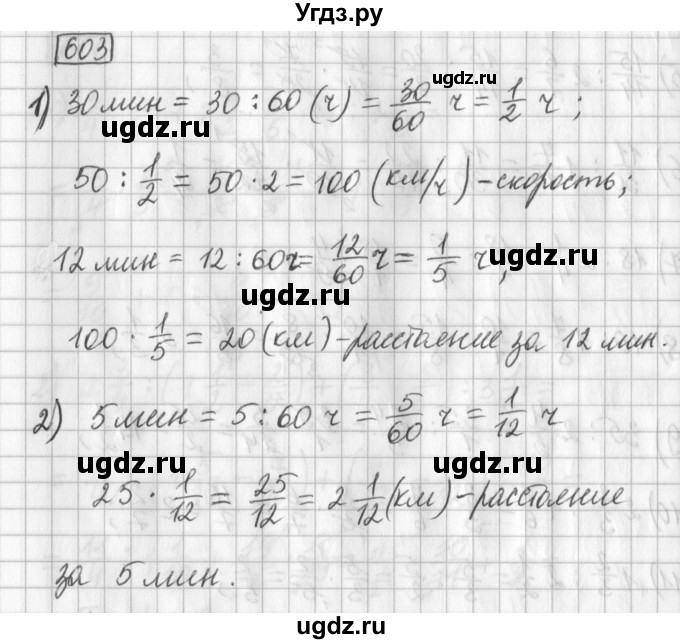 Угдз.ру
603
1) 30 мин = 30 : 60 (ч) = 30/60 ч = 1/2 ч ;
50 : 1/2 = 50 · 2 = 100 (км/ч) – скорость;
12 мин = 12 : 60ч = 12/60 ч = 1/5 ч ;
100 · 1/5 = 20 (км) – расстояние за 12 мин.
2) 5 мин = 5 : 60 ч = 5/60 ч = 1/12 ч
25 · 1/12 = 25/12 = 2 1/12 (км) – расстояние
за 5 мин.
ugdz.ru
ugdz.ru
ugdz.ru
ugdz.ru
ugdz.ru
ugdz.ru
ugdz.ru
ugdz.ru
ugdz.ru